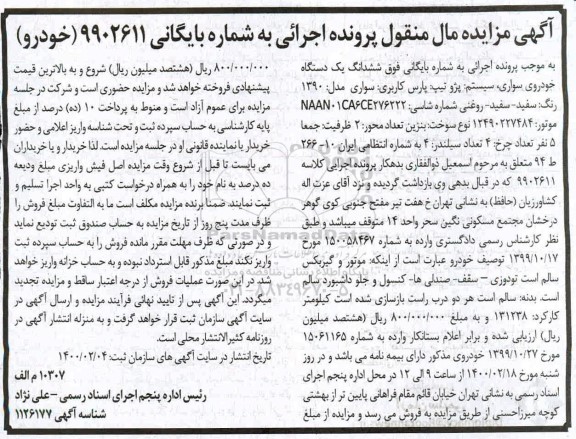 آگهی مزایده مال منقول پرونده اجرائی به شماره بایگانی ۹۹۰۲۶۱۱ (خودرو)
به موجب پرونده اجرائی به شماره بایگانی فوق ششدانگ یک دستگاه
خودروی سواری، سیستم: پژو تیپ: پارس کاربری: سواری مدل: ۱۳۹۰
رنگ: سفید-سفید- روغنی شماره شاسی: NAAN۰۱CA۶CE۲۷۶۲۲۲
موتور: ۱۲۴۹۰۲۲۷۴۸۴ نوع سوخت: بنزین تعداد محور: ۲ ظرفیت: جمعا
۵ نفر تعداد چرخ: ۴ تعداد سیلندر: ۴ به شماره انتظامی ایران ۱۰-۲۶۶
ط ۹۴ متعلق به مرحوم اسمعیل ذوالفقاری بدهکار پرونده اجرایی کلاسه
۹۹۰۲۶۱۱ که در قبال بدهی وی بازداشت گردیده و نزد آقای عزت اله
کشاورزیان (حافظ) به نشانی تهران خ هفت تیر مفتح جنوبی کوی گوهر
درخشان مجتمع مسکونی نگین سحر واحد ۱۴ متوقف میباشد و طبق
نظر کارشناس رسمی دادگستری وارده به شماره ۱۵۰۰۵۸۴۶۷ مورخ
۱۳۹۹/۱۰/۱۷ توصیف خودرو عبارت است از اینکه: موتور و گیربکس
سالم است تودوزی – سقف- صندلی ها- کنسول و جلو داشبورد سالم
است. بدنه: سالم است هر دو درب راست بازسازی شده است کیلومتر
کارکرد: ۱۳۱۲۳۸ و به مبلغ ۸۰۰/۰۰۰/۰۰۰ ریال (هشتصد میلیون
ریال) ارزیابی شده و برابر اعلام بستانکار وارده به شماره ۱۵۰۶۱۱۶۵
مورخ ۱۳۹۹/۱۰/۲۷ خودروی مذکور دارای بیمه نامه می باشد و در روز
شنبه مورخ ۱۴۰۰/۰۲/۱۸ از ساعت ۹ الی ۱۲ در محل اداره پنجم اجرای
اسناد رسمی به نشانی تهران خیابان قائم مقام فراهانی پایین تر از بهشتی
کوچه میرزاحسنی از طریق مزایده به فروش می رسد و مزایده از مبلغ
۸۰۰/۰۰۰/۰۰۰ ریال (هشتصد میلیون ریال) شروع و به بالاترین قیمت
پیشنهادی فروخته خواهد شد و مزایده حضوری است و شرکت در جلسه
مزایده برای عموم آزاد است و منوط به پرداخت ۱۰ (ده) درصد از مبلغ
پایه کارشناسی به حساب سپرده ثبت و تحت شناسه واریز اعلامی و حضور
خریدار یا نماینده قانونی او در جلسه مزایده است. لذا خریدار و یا خریداران
می بایست تا قبل از شروع وقت مزایده اصل فیش واریزی مبلغ ودیعه
ده درصد به نام خود را به همراه درخواست کتبی به واحد اجرا تسلیم و
ثبت نمایند. ضمنا برنده مزایده مکلف است ما به التفاوت مبلغ فروش را
ظرف مدت پنج روز از تاریخ مزایده به حساب صندوق ثبت تودیع نماید
و در صورتی که ظرف مهلت مقرر مانده فروش را به حساب سپرده ثبت
واریز نکند مبلغ مذکور قابل استرداد نبوده و به حساب خزانه واریز خواهد
شد در این صورت عملیات فروش از درجه اعتبار ساقط و مزایده تجدید
میگردد. این آگهی پس از تایید نهائی فرآیند مزایده و ارسال آگهی در
سایت سازمان ثبت قرار خواهد گرفت و به منزله انتشار آگهی در
روزنامه کثیرالانتشار محلی است.
تاریخ انتشار در سایت آگهی های سازمان ثبت: ۱۴۰۰/۰۲/۰۴
۱۰۳۰۷ م الف
رئیس اداره پنجم اجرای اسناد رسمی – علی نژاد
شناسه آگهی ۱۱۲۶۱۷۷